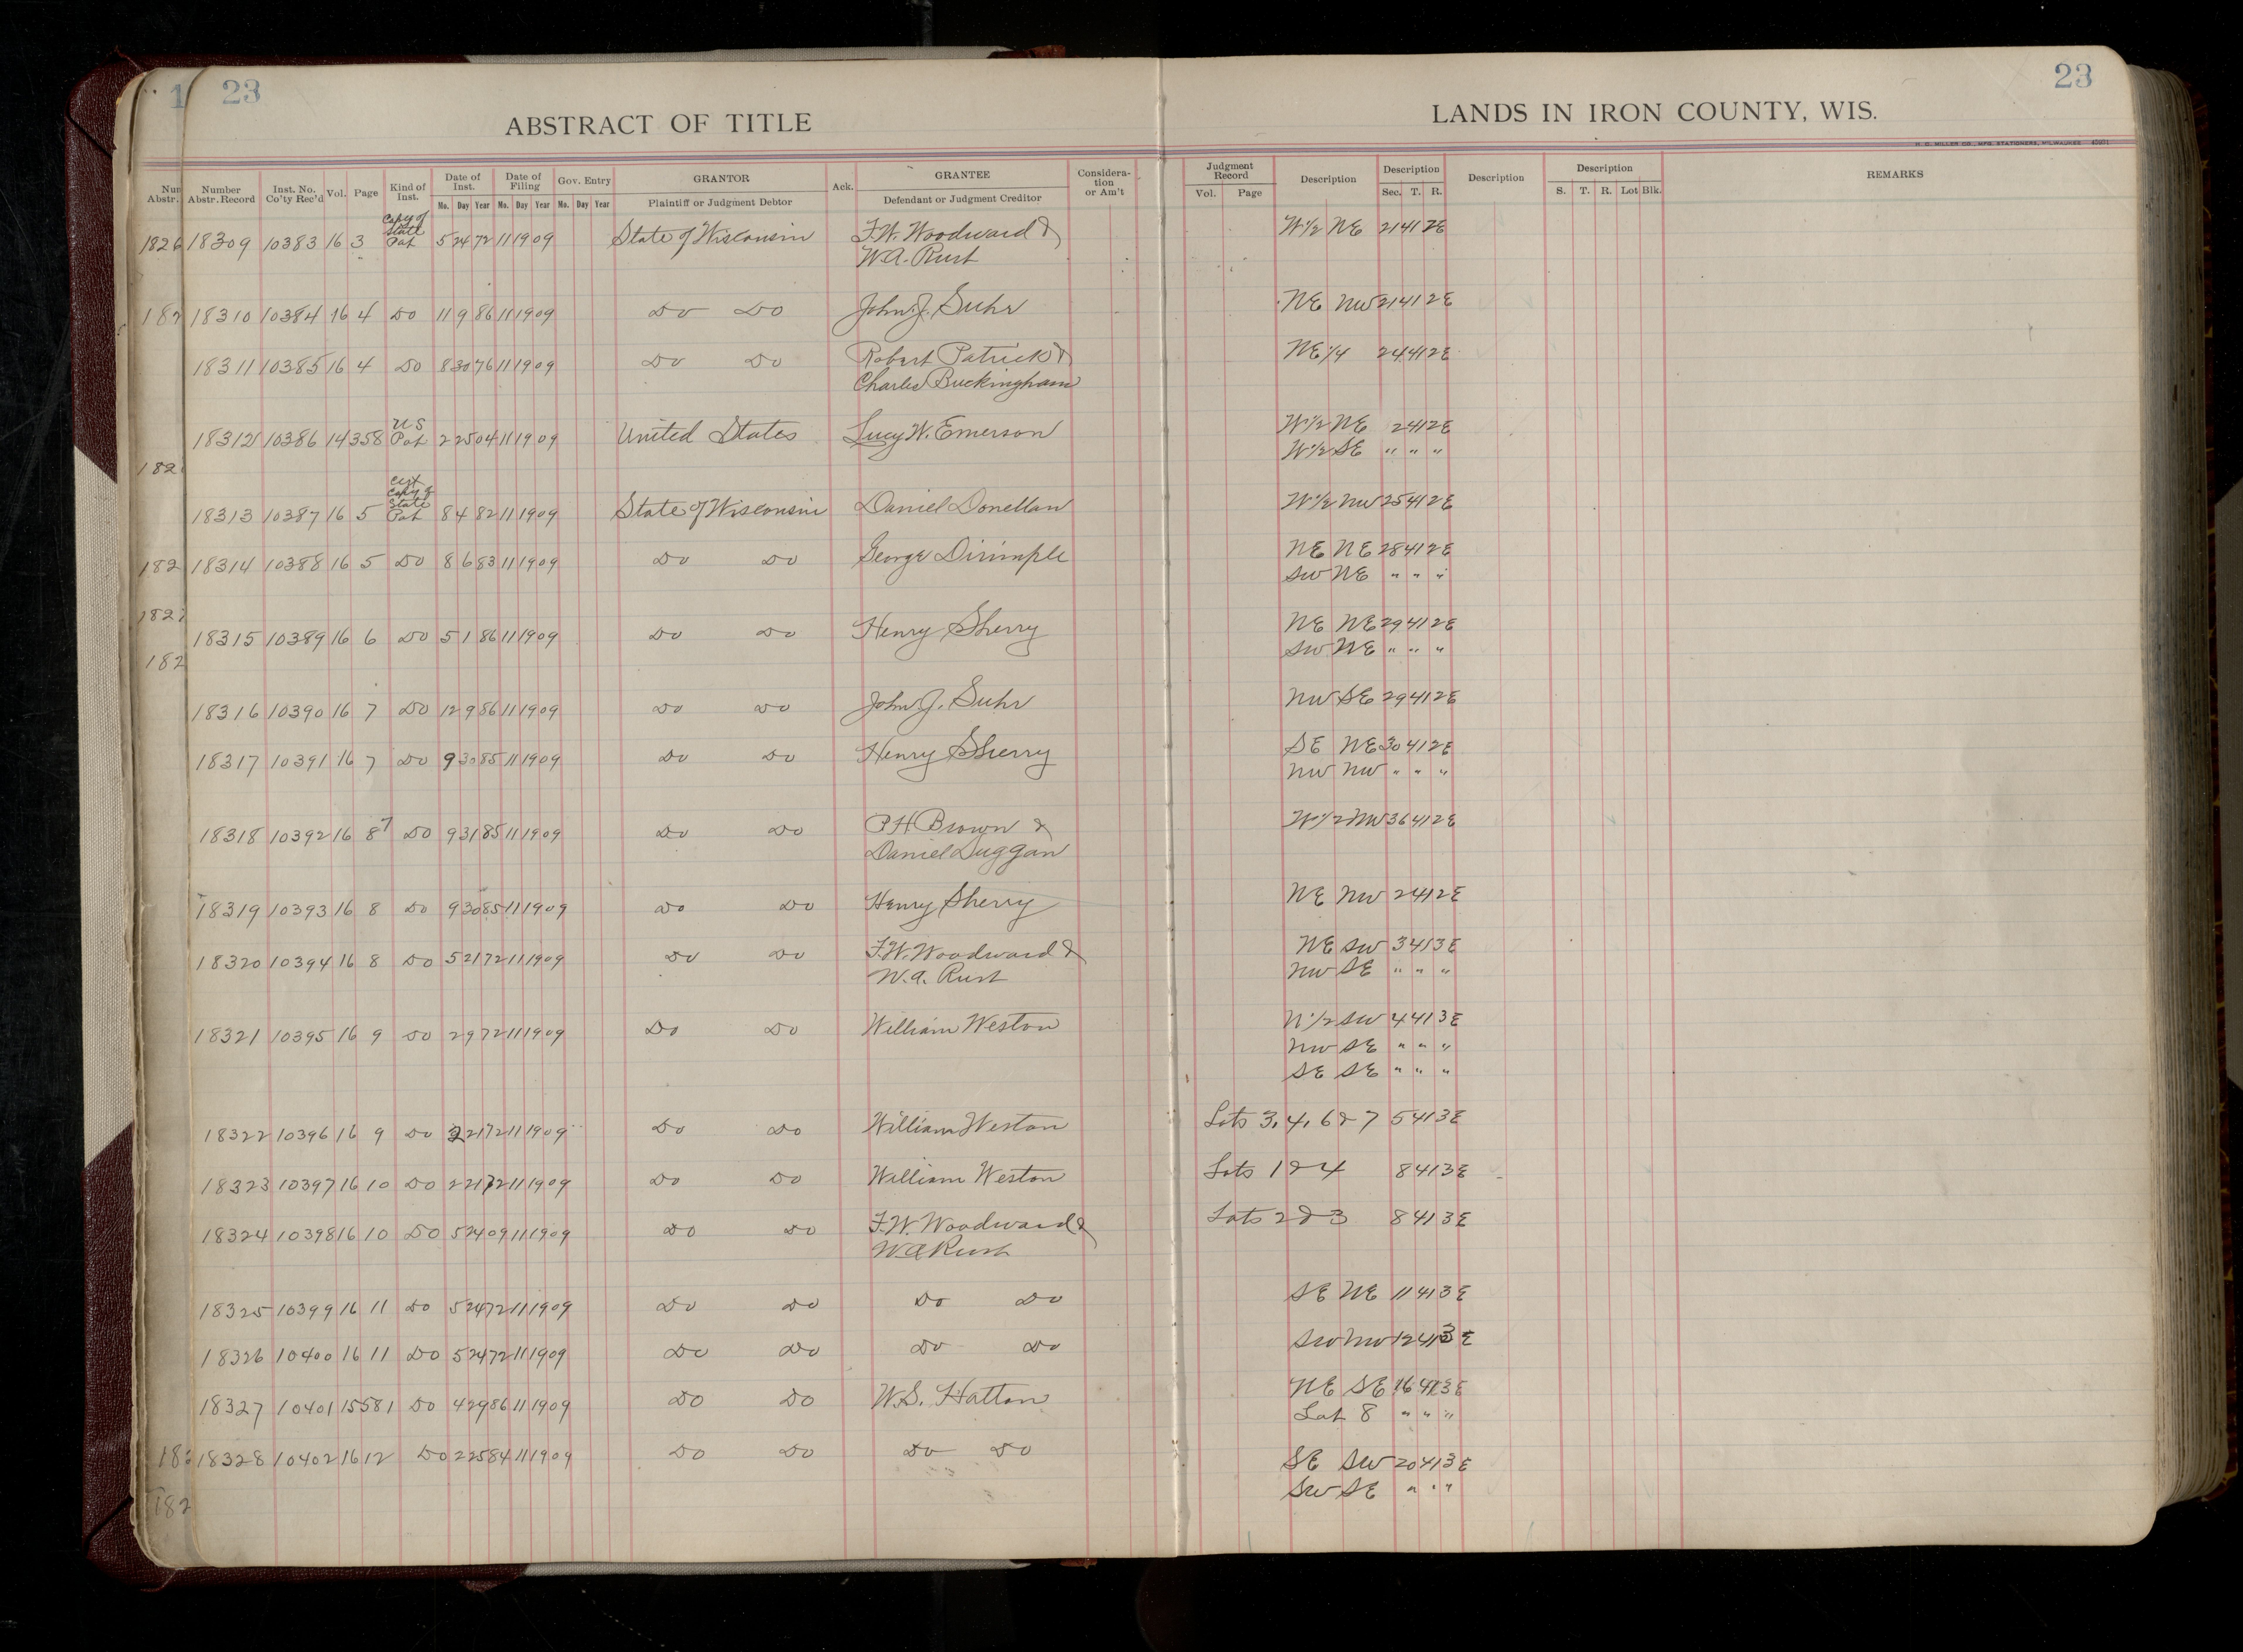 1 23
23
ABSTRACT OF TITLE
LANDS IN IRON COUNTY, WIS.
H. G. MILLER CO., MFG. STATIONERS, MILWAUKEE
Num Abstr. Number Abstr. Record Inst. No. Co'ty Rec'd Vol. Page Kind of Inst. Date of Inst. Mo. Day Year Date of Filing Mo. Day Year Gov. Entry Mo. Day Year GRANTOR Plaintiff or Judgment Debtor Ack. GRANTEE Defendant or Judgment Creditor Considera-tion or Am't Judgment Record Vol. Page Description Description Sec. T. R. Description Description S. T. R. Lot Blk. REMARKS
Copy of
State
1826 18309 10383 16 3 Pat 5 24 72 11 19 09 State of Wisconsin F.W. Woodward & W 1/2 NE 21 41 2E
W.A. Rust
187 18310 10384 16 4 Do 11 9 86 11 19 09 Do Do John J. Suhr NE NW 21 41 2E
18311 10385 16 4 Do 8 30 76 11 19 09 Do Do Robert Patrick & NE 1/4 24 41 2E
Charles Buckingham
US
18312 10386 14 358 Pat 2 25 04 11 19 09 United States Lucy W. Emerson W 1/2 NE 2 41 2E
182 W 1/2 SE " " "
Copy of
State
18313 10387 16 5 Pat 8 4 82 11 19 09 State of Wisconsin Daniel Donellan W 1/2 NW 25 41 2E
182 18314 10388 16 5 Do 8 6 83 11 19 09 Do Do George NE NE 28 41 2E
SW NE " " "
182
18315 10389 16 6 Do 5 1 86 11 19 09 Do Do Henry Sherry NE NE 29 41 2E
182 SW NE " " "
18316 10390 16 7 Do 12 9 86 11 19 09 Do Do John J. Suhr NW SE 29 41 2E
18317 10391 16 7 Do 9 30 85 11 19 09 Do Do Henry Sherry SE NE 30 41 2E
NW NW " " "
18318 10392 16 8 7 Do 9 31 85 11 19 09 Do Do P H Brown & W 1/2 NW 36 41 2E
Daniel Duggan
18319 10393 16 8 Do 9 30 85 11 19 09 Do Do Henry Sherry NE NW 2 41 2E
18320 10394 16 8 Do 5 21 72 11 19 09 Do Do F.W. Woodward & NE SW 3 41 3E
W.A. Rust NW SE " " "
18321 10395 16 9 Do 2 9 72 11 19 09 Do Do William Weston N 1/2 SW 4 41 3E
NW SE " " "
SE SE " " "
18322 10396 16 9 Do 2 21 72 11 19 09 Do Do William Weston Lots 3, 4, 6 & 7 5 41 3E
18323 10397 16 10 Do 2 21 72 11 19 09 Do Do William Weston Lots 1 & 4 8 41 3E
18324 10398 16 10 Do 5 24 09 11 19 09 Do Do F.W. Woodward & Lots 2 & 3 8 41 3E
W.A Rust
18325 10399 16 11 Do 5 24 72 11 19 09 Do Do Do Do SE NE 11 41 3E
18326 10400 16 11 Do 5 24 72 11 19 09 Do Do Do Do SW NW 12 41 3E
18327 10401 15 581 Do 4 29 86 11 19 09 Do Do W.S. Hatton NE SE 16 41 3E
Lot 8 " " "
182 18328 10402 16 12 Do 2 25 84 11 19 09 Do Do Do Do SE SW 20 41 3E
182 SW SE " " "